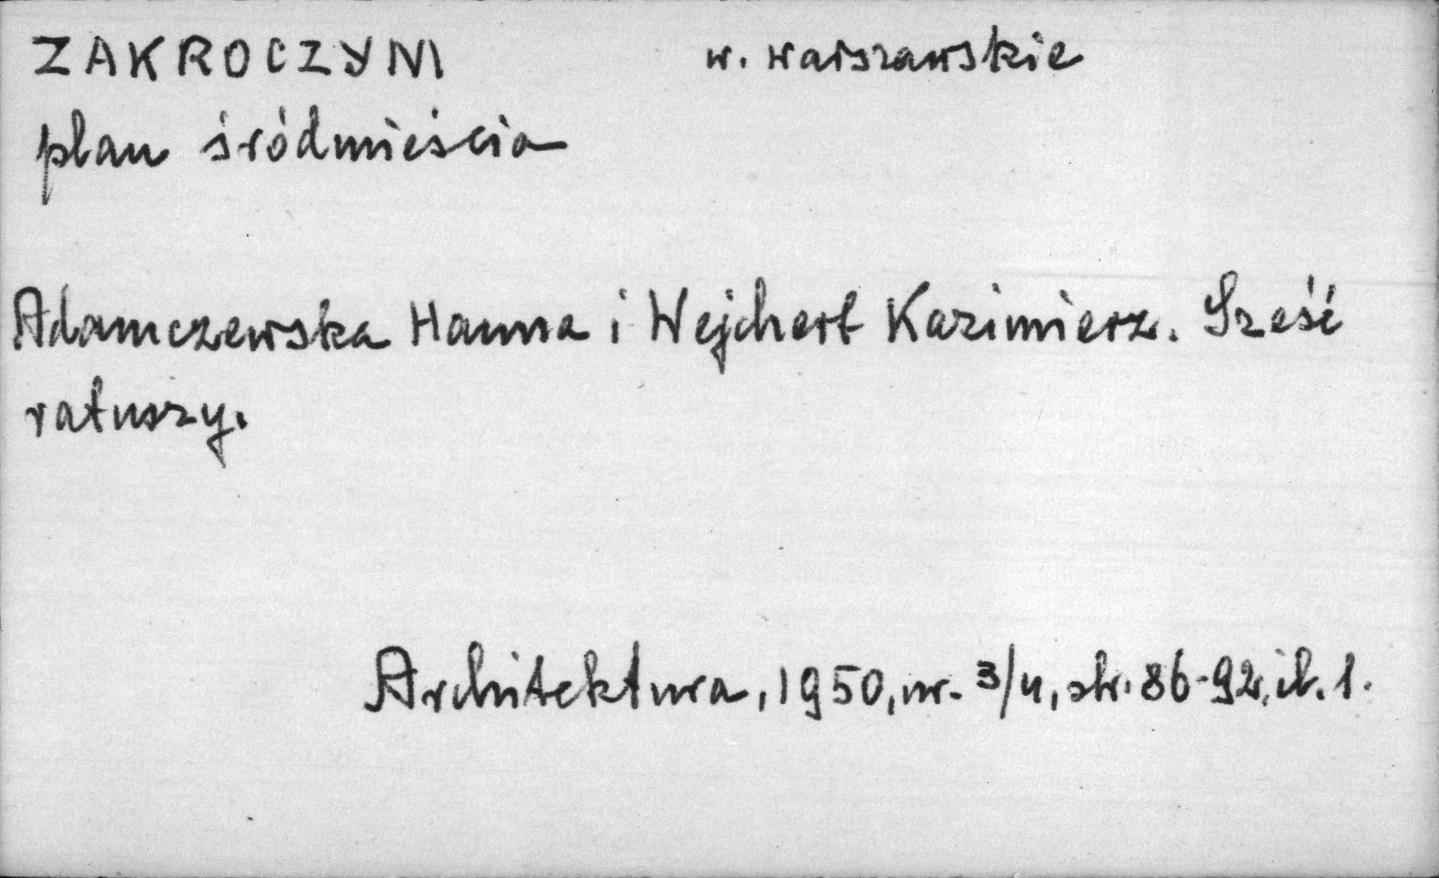 ZAKROCZYM w. warszawskie
plan śródmieścia
Adamczewska Hanna i Wejchert Kazimierz. Sześć
ratuszy.
Architektura, 1950, nr. 3/4, str. 86-92, il. 1.